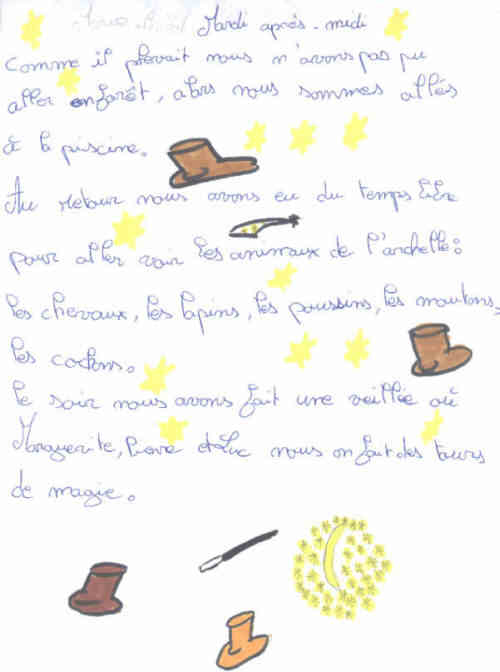 Mardi après-midi
Comme il pleuvait nous n'avons pas pu
aller en forêt, alors nous sommes allés
à la piscine.
Au retour nous avons eu du temps libre
pour aller voir les animaux de l'archette:
les chevaux, les lapins, les poussins, les moutons,
les cochons.
Le soir nous avons fait une veillée où
Marguerite, Pierre et Luc nous on fait des tours
de magie.